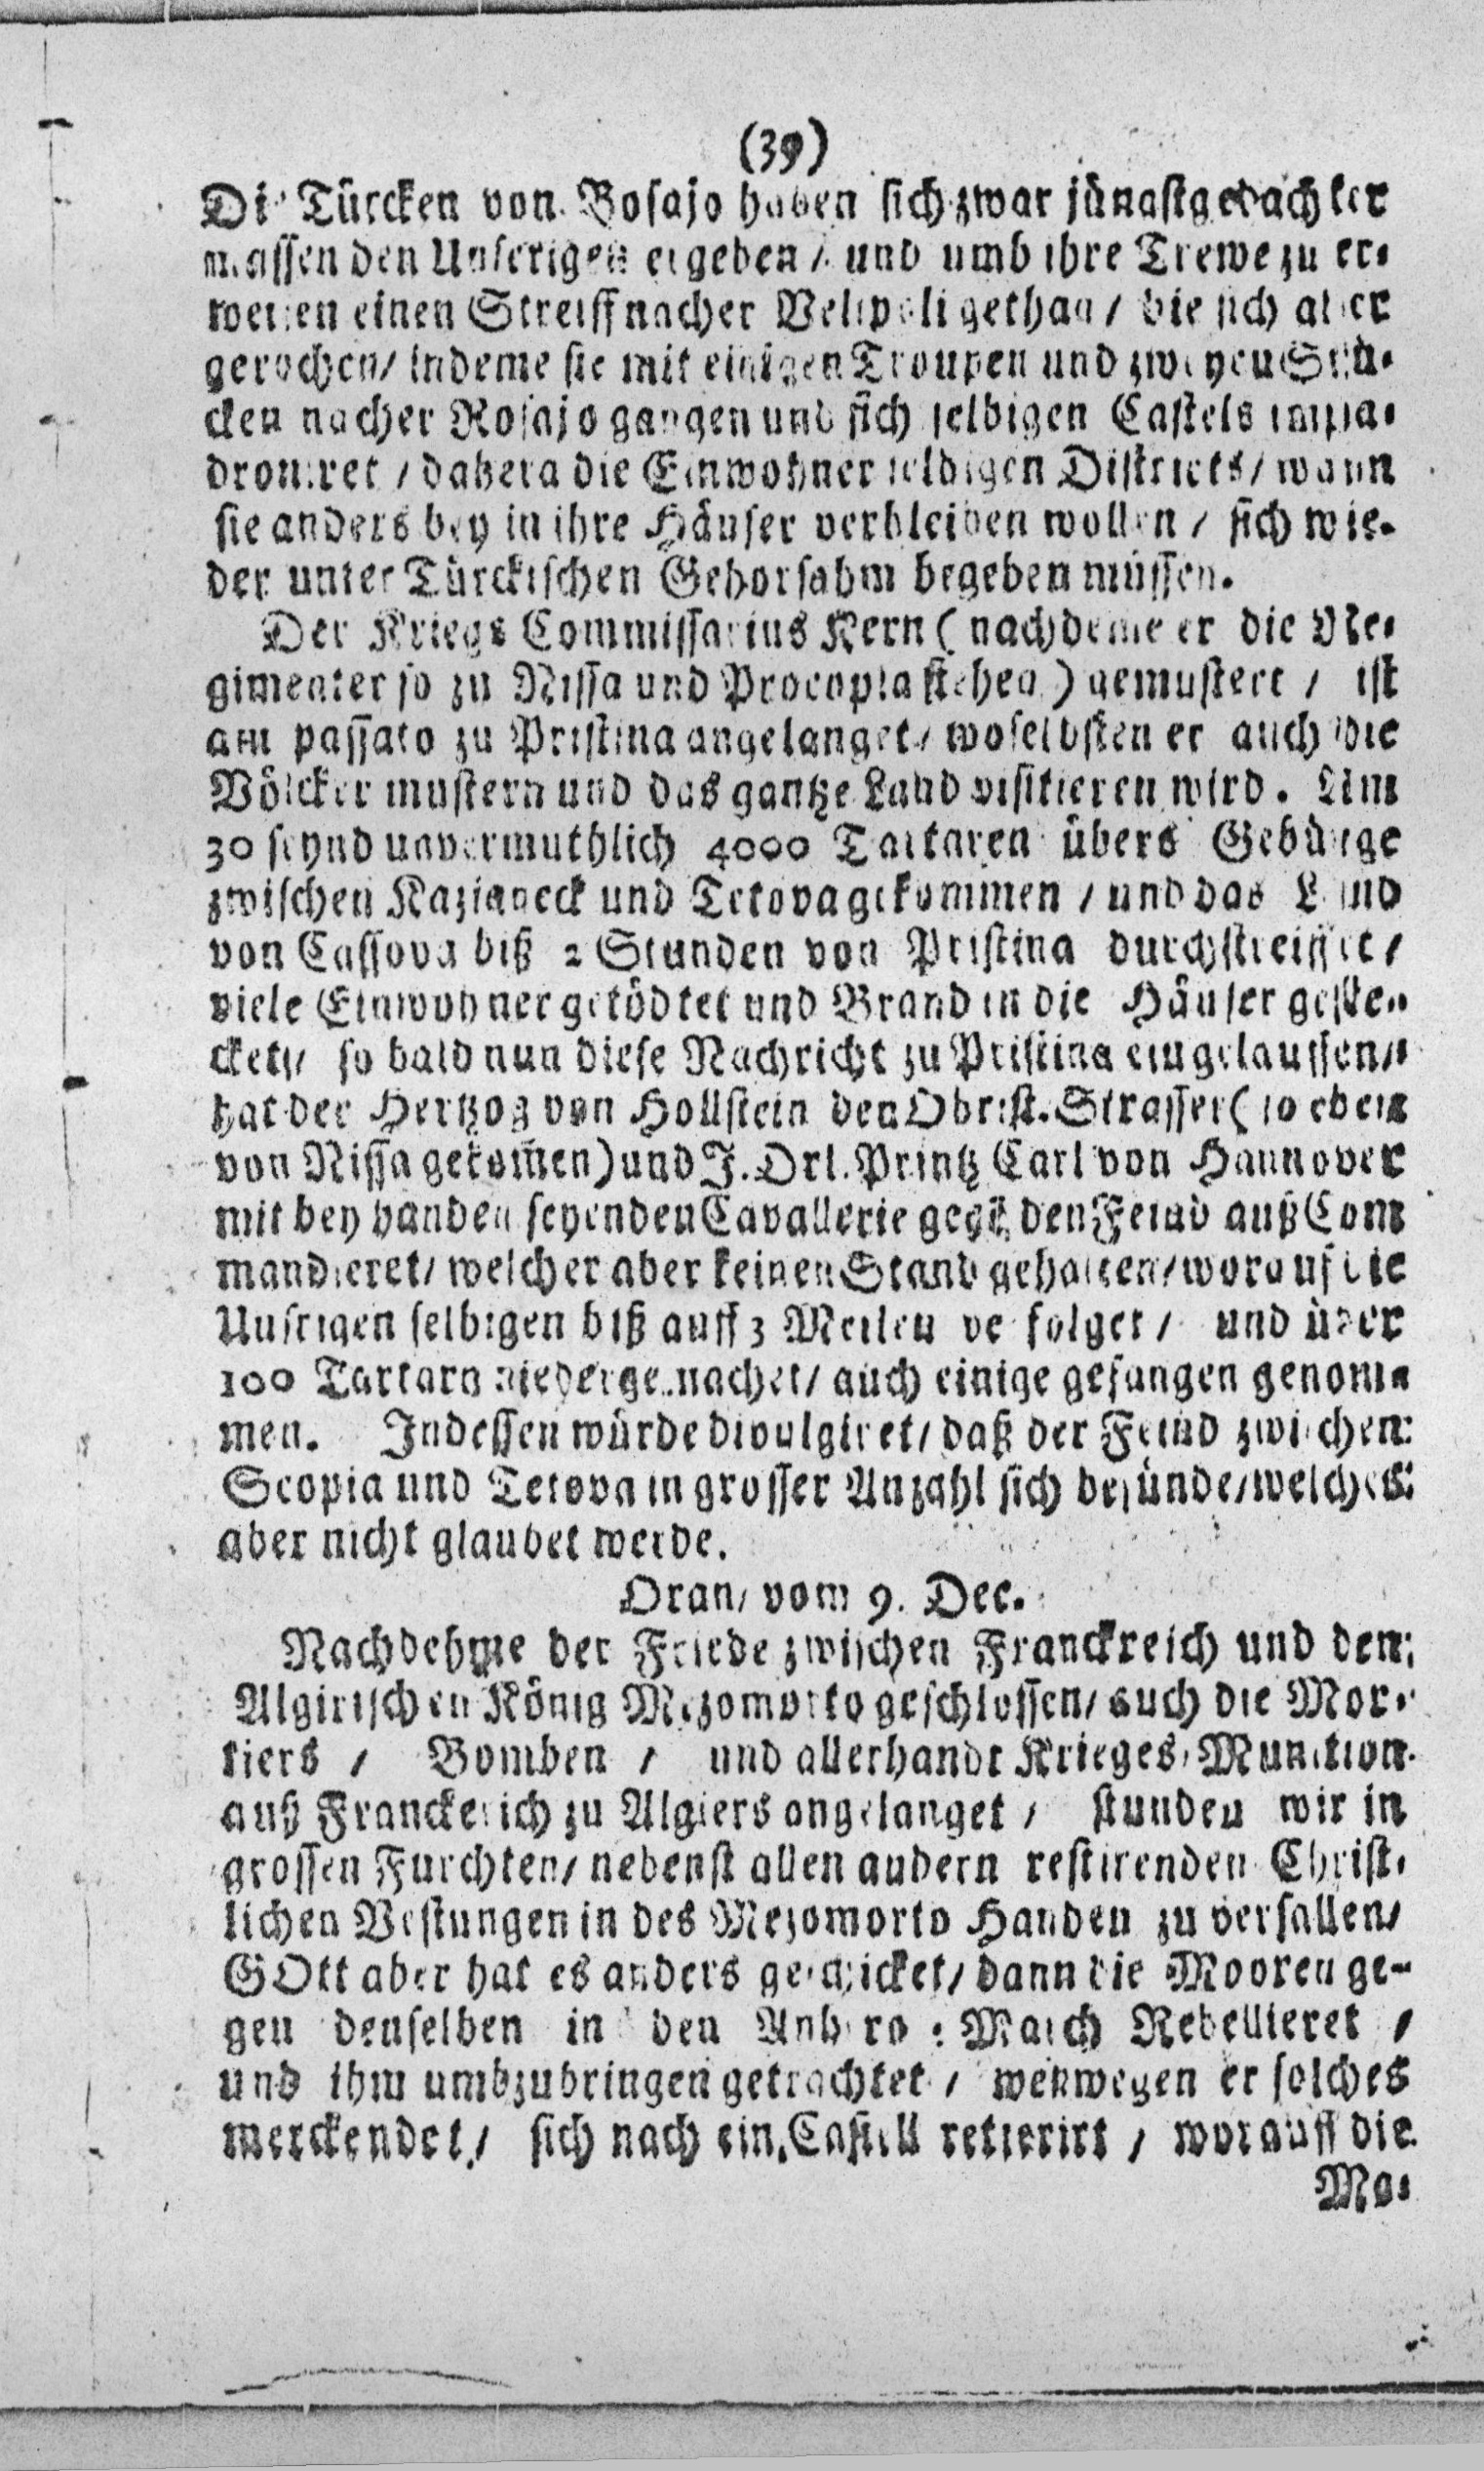 (39)
Die Türcken von Bosajo haben sich zwar jüngstgedachter
massen den Unserigen ergeben / und umb ihre Trewe zu er-
weisen einen Streiff nacher Velipoli gethan / die sich aber
gerochen / indeme sie mit einigen Troupen und zweyen Stü-
cken nacher Rosajo gangen und sich selbigen Castels impa-
droniret / dahero die Einwohner selbigen Districts / wann
sie anders bey in ihre Häuser verbleiben wollen / sich wie-
der unter Türckischen Gehorsahm begeben müssen.
Der Kriegs Commissarius Kern ( nachdeme er die Re-
gimenter so zu Nissa und Procopia stehen ) gemustert / ist
am passato zu Pristina angelanget / woselbsten er auch die
Völcker mustern und das gantze Land visitieren wird. Am
30 seynd unvermuthlich 4000 Tartaren übers Gebürge
zwischen Kazianeck und Tetova gekommen / und das Land
von Cassova biß 2 Stunden von Pristina durchstreiffet /
viele Einwohner getödtet und Brand in die Häuser geste-
cket / so bald nun diese Nachricht zu Pristina eingelauffen /
hat der Hertzog von Hollstein den Obrist. Strasser ( so eben
von Nissa gekom̄en) und J. Drl. Printz Carl von Hannover
mit bey handen seyenden Cavallerie gegē den Feind auß Com
mandieret / welcher aber keinen Stand gehalten / worauf die
Unsrigen selbigen biß auff 3 Meilen verfolget / und über
100 Tartarn niedergemachet / auch einige gefangen genom-
men. Indessen würde divulgiret / daß der Feind zwischen
Scopia und Tetova in grosser Anzahl sich befünde / welches
aber nicht glaubet werde.
Oran / vom 9. Dec.
Nachdehme der Friede zwischen Franckreich und den
Algirischen König Mezomorto geschlossen / auch die Mor-
tiers / Bomben / und allerhandt Krieges-Munition
auß Franckerich zu Algiers angelanget / stunden wir in
grossen Furchten / nebenst allen andern restirenden Christ-
lichen Vestungen in des Mezomorto Handen zu verfallen /
GOtt aber hat es anders geschicket / dann die Mooren ge-
gen denselben in den Anhero-March Rebellieret /
und ihm umbzubringen getrachtet / weßwegen er solches
merckendet / sich nach ein Castell retierirt / worauff die
Mo-